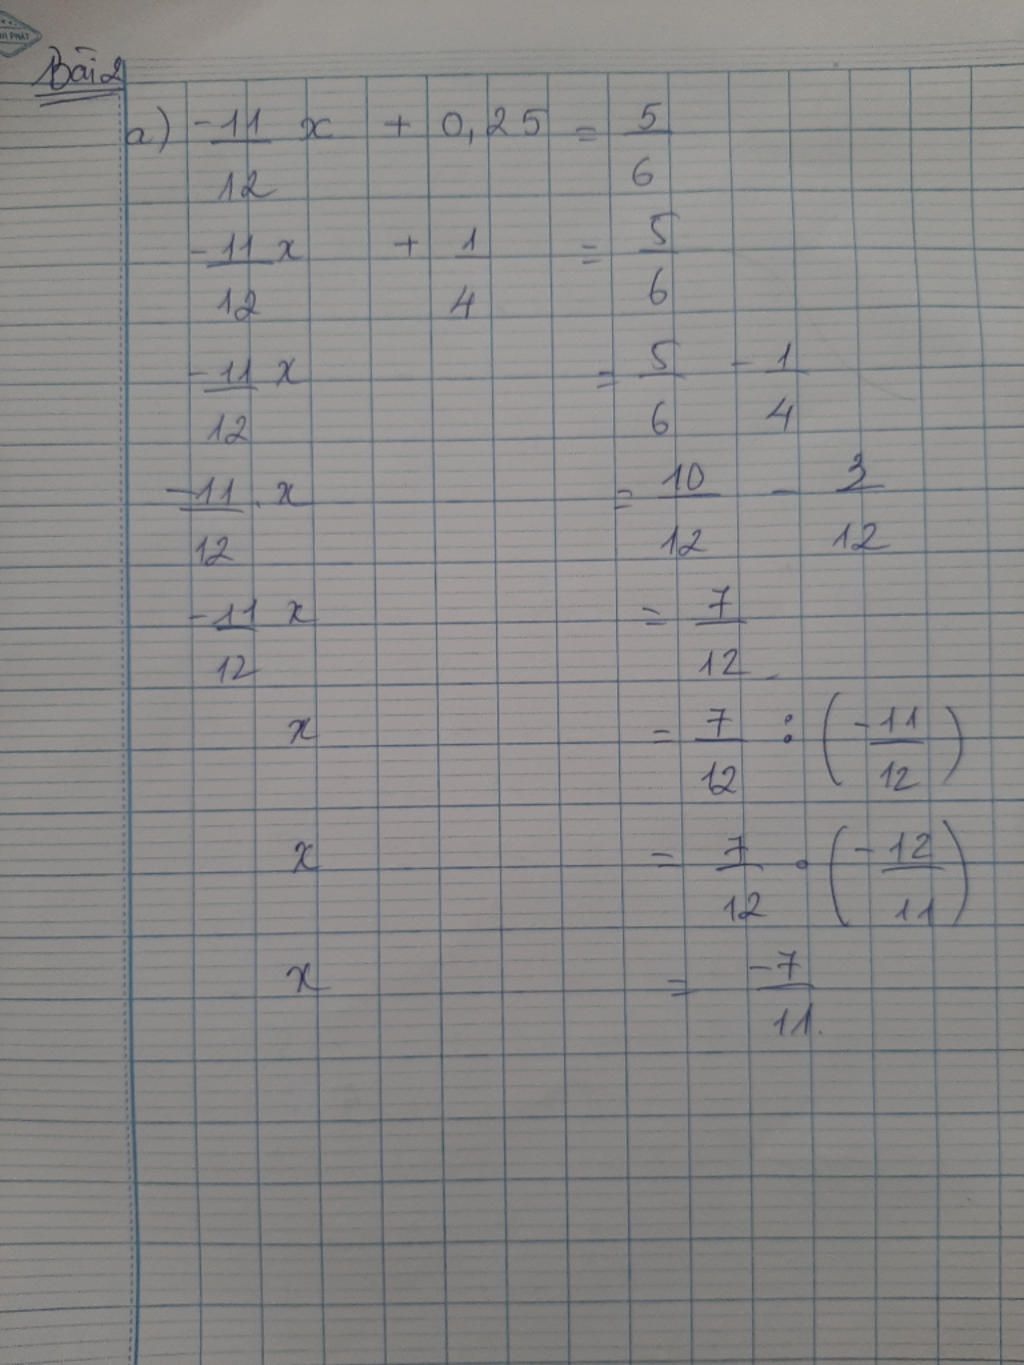 Bài 2
a) -11/12 x + 0,25 = 5/6
-11/12 x + 1/4 = 5/6
-11/12 x = 5/6 - 1/4
-11/12 . x = 10/12 - 3/12
-11/12 x = 7/12
x = 7/12 : (-11/12)
x = 7/12 . (-12/11)
x = -7/11.